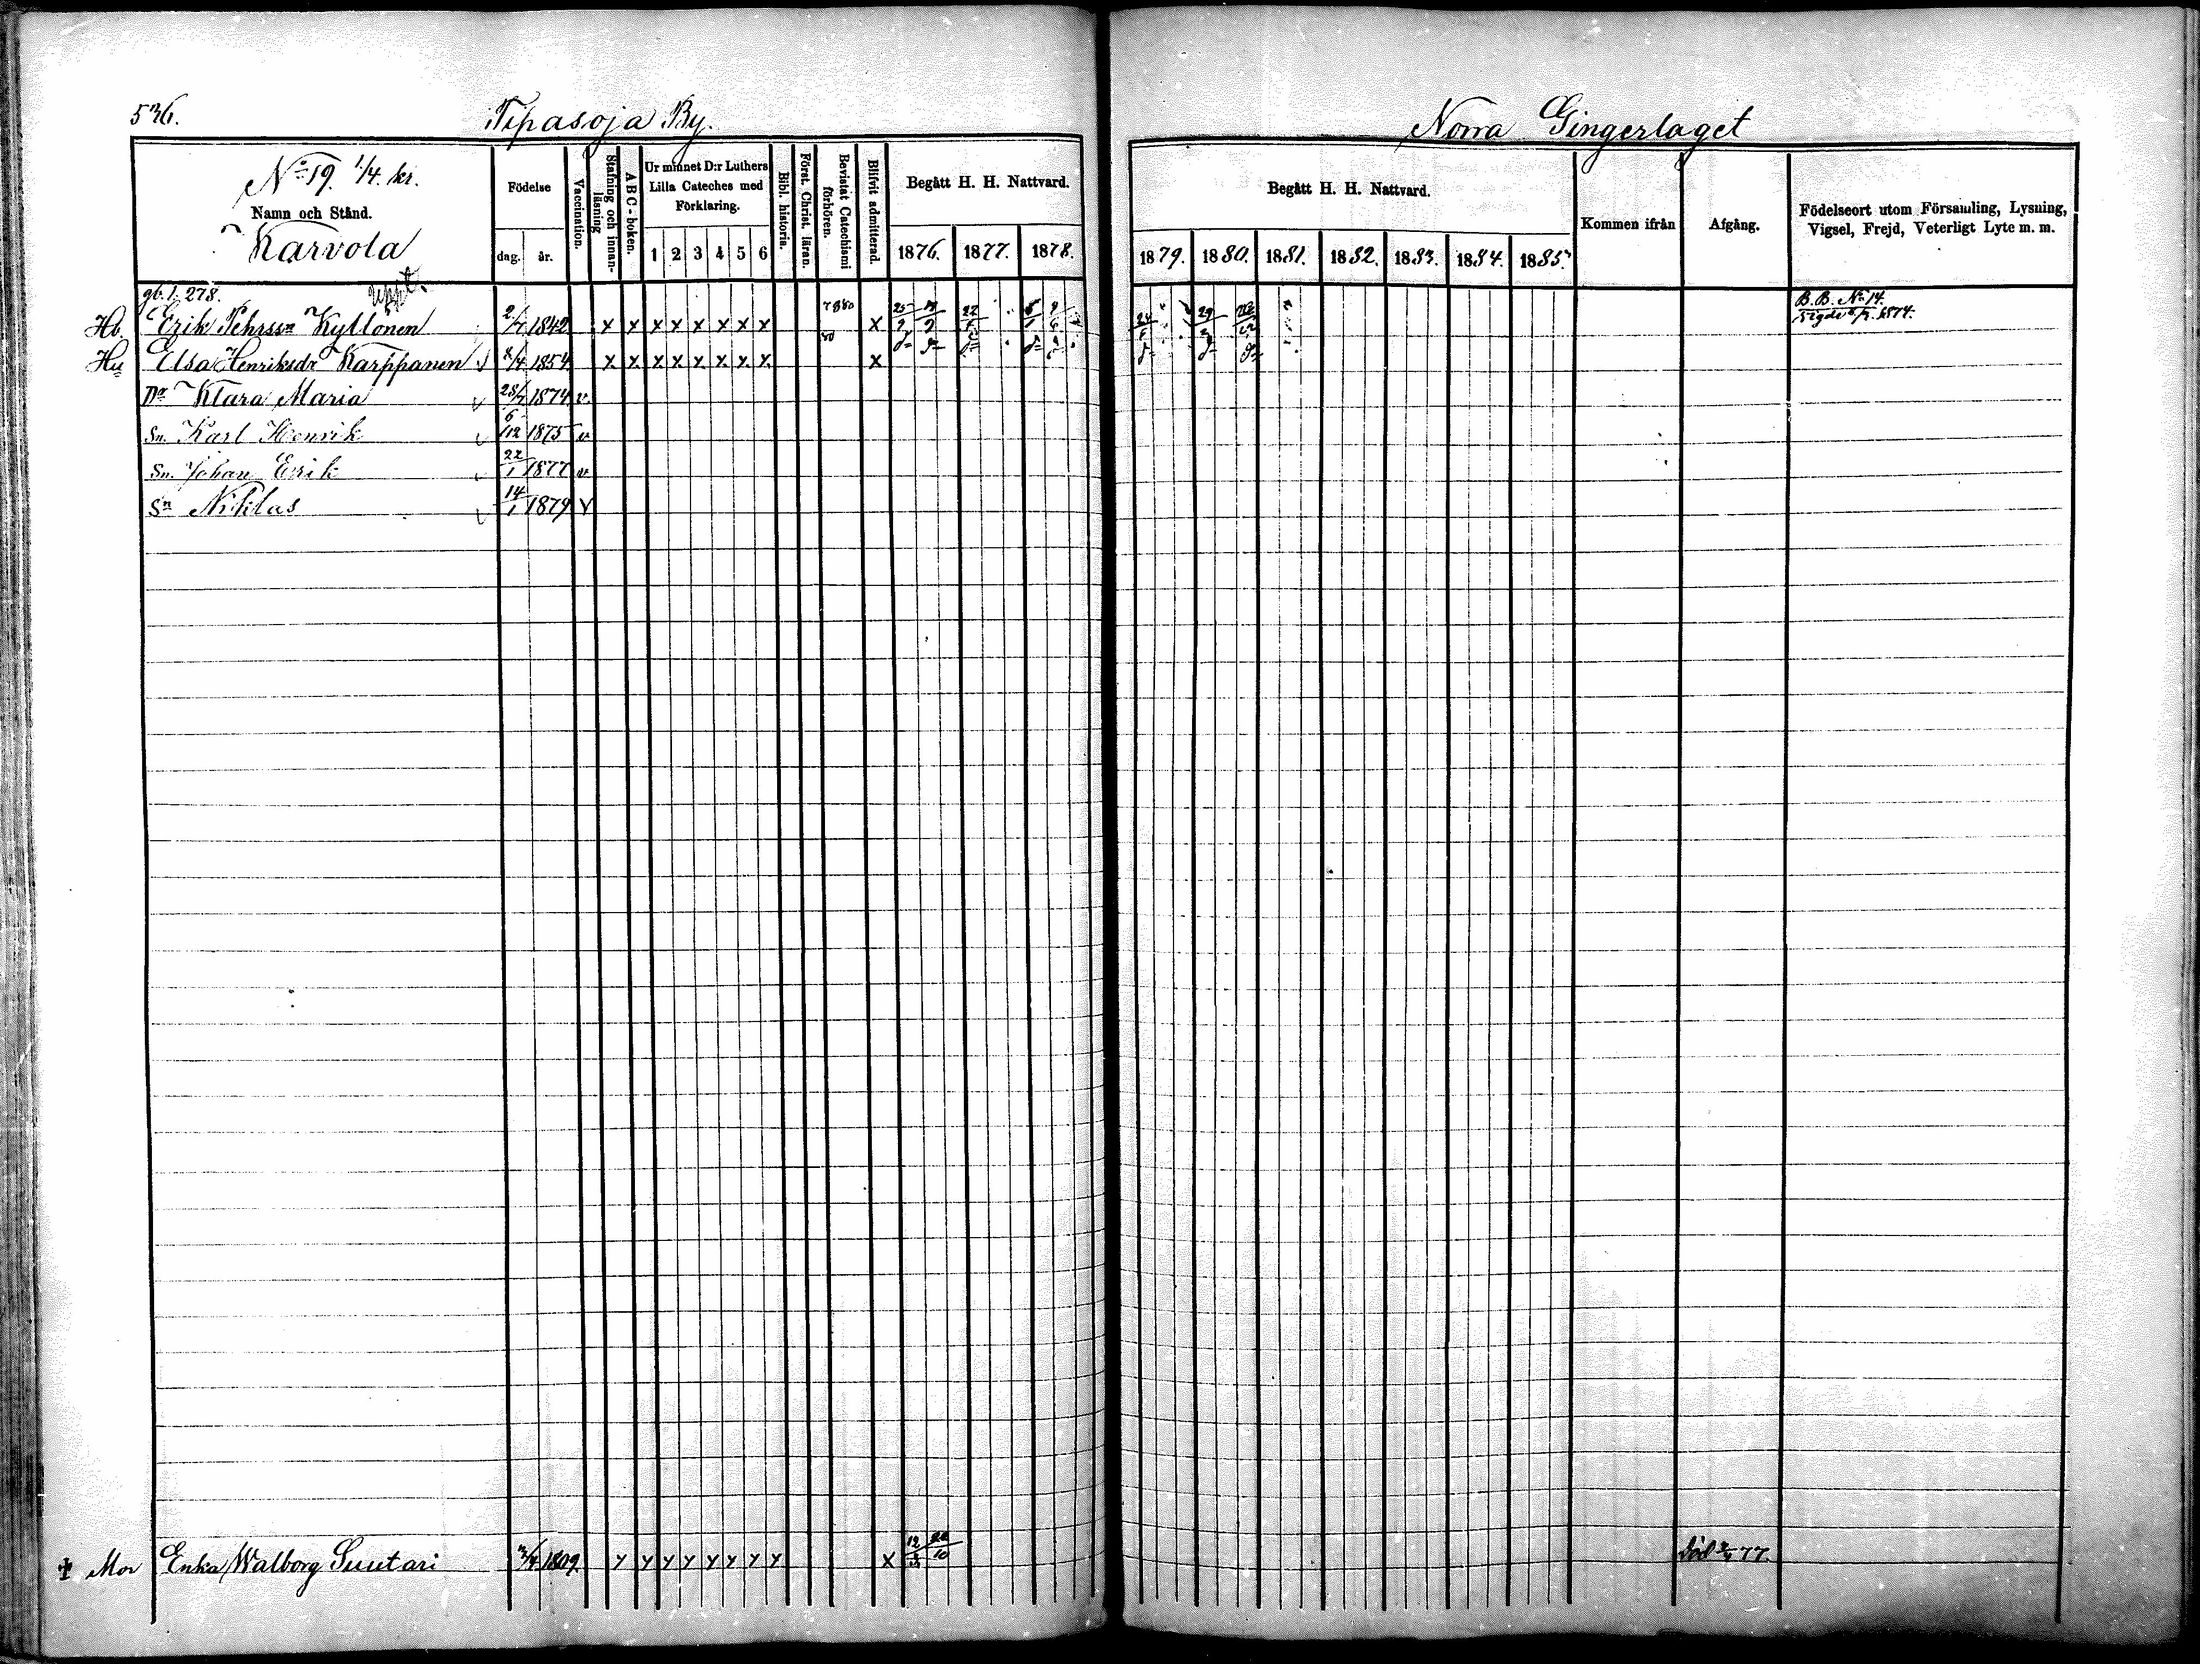 536.
Tipasoja By.
Norra Gingerlaget
No 19. 1/4. kr.
Namn och Stånd.
Karvola
Födelse
dag.
år.
Vaccination.
Stafning och innanläsning
A B C-boken.
Ur minnet D:r Luthers Lilla Cateches med Förklaring.
1 2 3 4 5 6
Bibl. historia.
Förest. Christ. läran.
Bevistat Catechismi förhören.
Blifvit admitterad.
Begått H. H. Nattvard.
1876. 1877. 1878.
Begått H. H. Nattvard.
1879. 1880. 1881. 1882. 1883. 1884. 1885.
Kommen ifrån
Afgång.
Födelseort utom Församling, Lysning, Vigsel, Frejd, Veterligt Lyte m. m.
gb. 1. 278.
Hb. Erik Pehrsson Kyllönen 2/7 1842 x x x x x x x x x
B. B. No 14.
Hu Elsa Henriksdr Karppanen 1854 x x x x x x x x x
Dr Klara Maria 28/7 1874 v.
Sn. Karl Henrik 6/12 1875 v
Sn. Johan Erik 22/1 1877 v
Sn Niklas 14/1 1879 v
Mor Enka Walborg Suutari 1809 x x x x x x x x x 12/3 22/10 död 77.